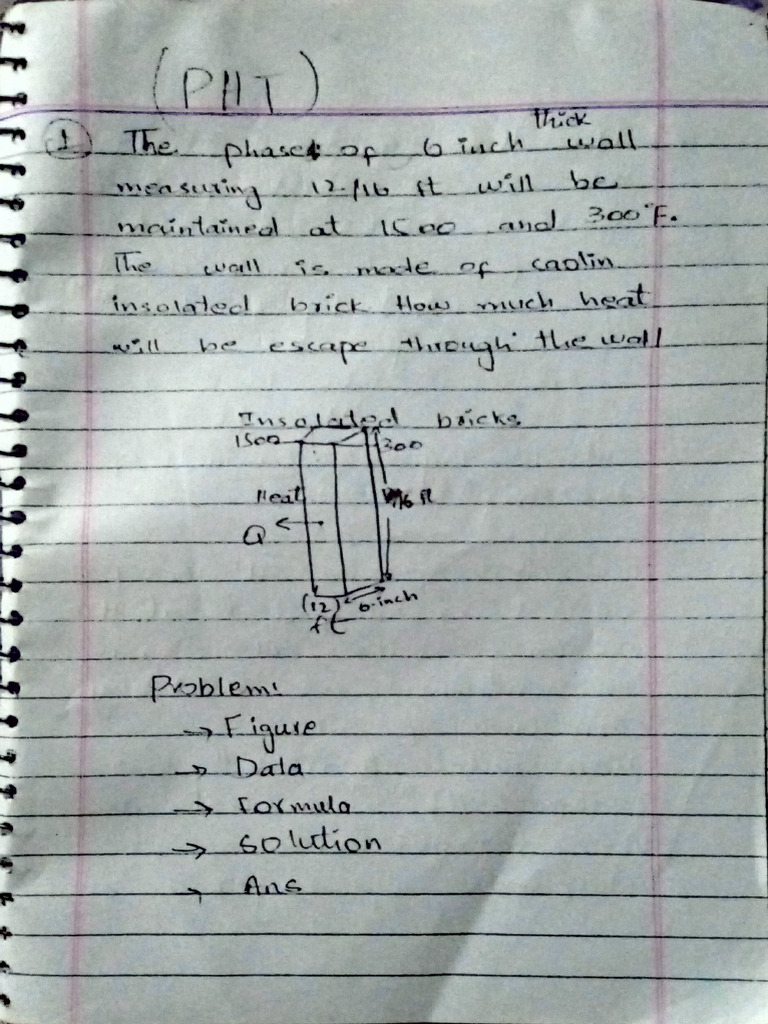 (PHT)
① The phases of 6 inch thick wall
measuring 12/16 ft will be
maintained at 1500 and 300°F.
The wall is made of caolin
insolated brick How much heat
will be escape through the wall
Insolated bricks
1500 300
Heat 16 ft
Q
(12) 6-inch
ft
Problem:
→ Figure
→ Data
→ Formula
→ Solution
→ Ans